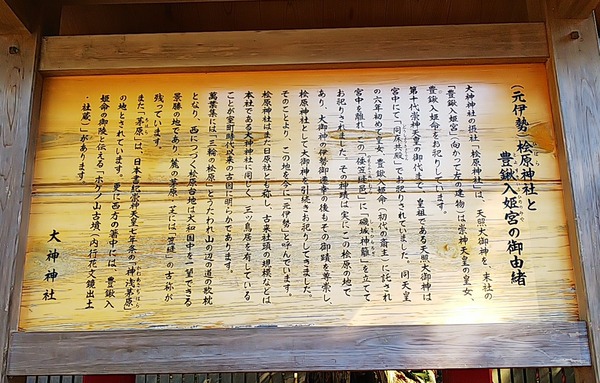 (元伊勢)桧原神社と
豊鍬入姫宮の御由緒
大神神社の摂社「桧原神社」は、天照大御神を、末社の
「豊鍬入姫宮」(向かって左の建物)は崇神天皇の皇女、
豊鍬入姫命をお祀りしています。
第十代崇神天皇の御代まで、皇祖である天照大御神は
宮中にて「同床共殿」でお祀りされていました。同天皇
の六年初めて皇女、豊鍬入姫命(初代の斎王)に託され
宮中を離れ、この「倭笠縫邑」に「磯城神籬」を立てて
お祀りされました。その神蹟は実にこの桧原の地で
あり、大御神の伊勢御遷幸の後もその御蹟を尊崇し、
桧原神社として大御神を引続きお祀りしてきました。
そのことより、この地を今に「元伊勢」と呼んでいます。
桧原神社はまた日原社とも称し、古来社頭の規模などは
本社である大神神社に同じく、三ツ鳥居を有している
ことが室町時代以来の古図に明らかであります。
萬葉集には「三輪の桧原」とうたわれ山の辺の道の歌枕
となり、西につづく桧原台地は大和国中を一望できる
景勝の地であり、麓の茅原・芝には「笠縫」の古称が
残っています。
また「茅原」は、日本書紀崇神天皇七年条の「神浅茅原」
の地とされています。更に西方の箸中には、豊鍬入
姫命の御陵と伝える「ホケノ山古墳」(内行花文鏡出土
・社蔵)」があります。
大神神社